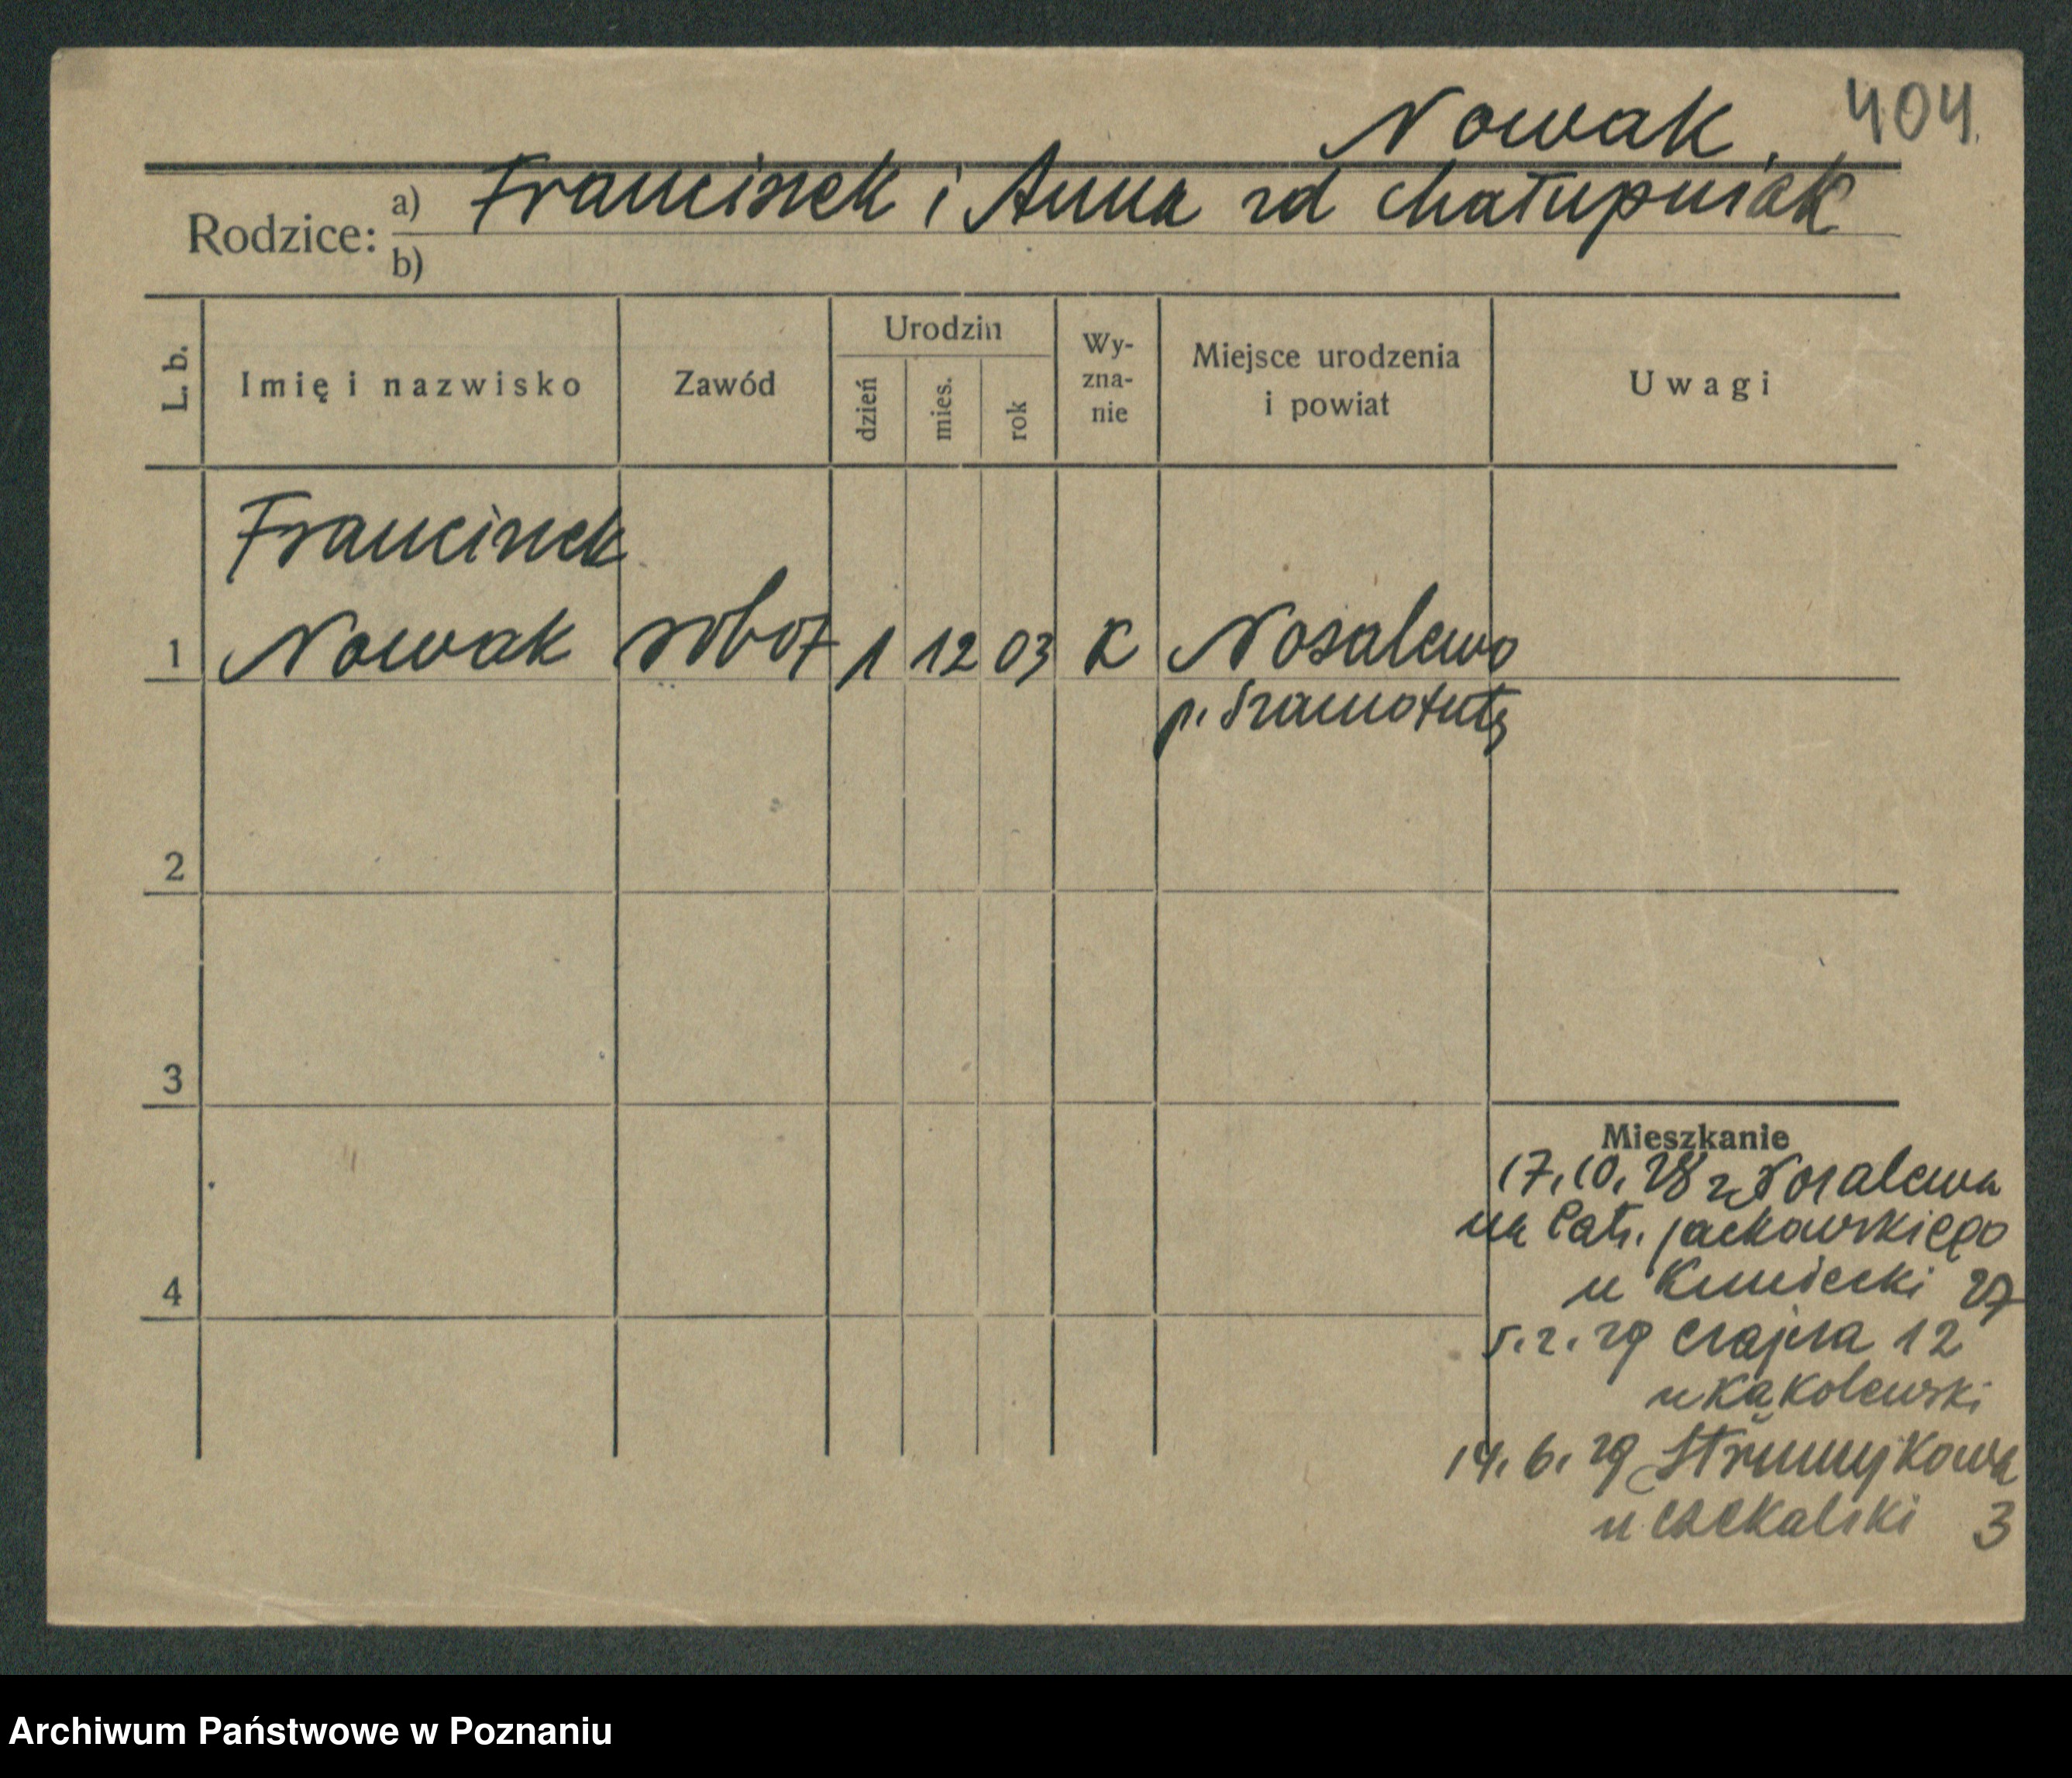 Nowak. 404.
Rodzice: a) Franciszek i Anna zd Chałupniak
b)
L. b. Imię i nazwisko Zawód Urodzin dzień mies. rok Wy-zna-nie Miejsce urodzenia i powiat Uwagi
Franciszek
1 Nowak robot 1 12 03 K Nosalewo
p. Szamotuły
2
3
Mieszkanie
17.10.28 z Nosalewa
na Jackowskiego
4 u Kmiecki 27
5.2.29 Czajcza 12
u Kąkolewski
14.6.29 Strumykowa
u Czekalski 3
Archiwum Państwowe w Poznaniu